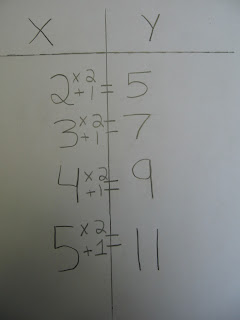 X Y
2 x 2 + 1 = 5
3 x 2 + 1 = 7
4 x 2 + 1 = 9
5 x 2 + 1 = 11